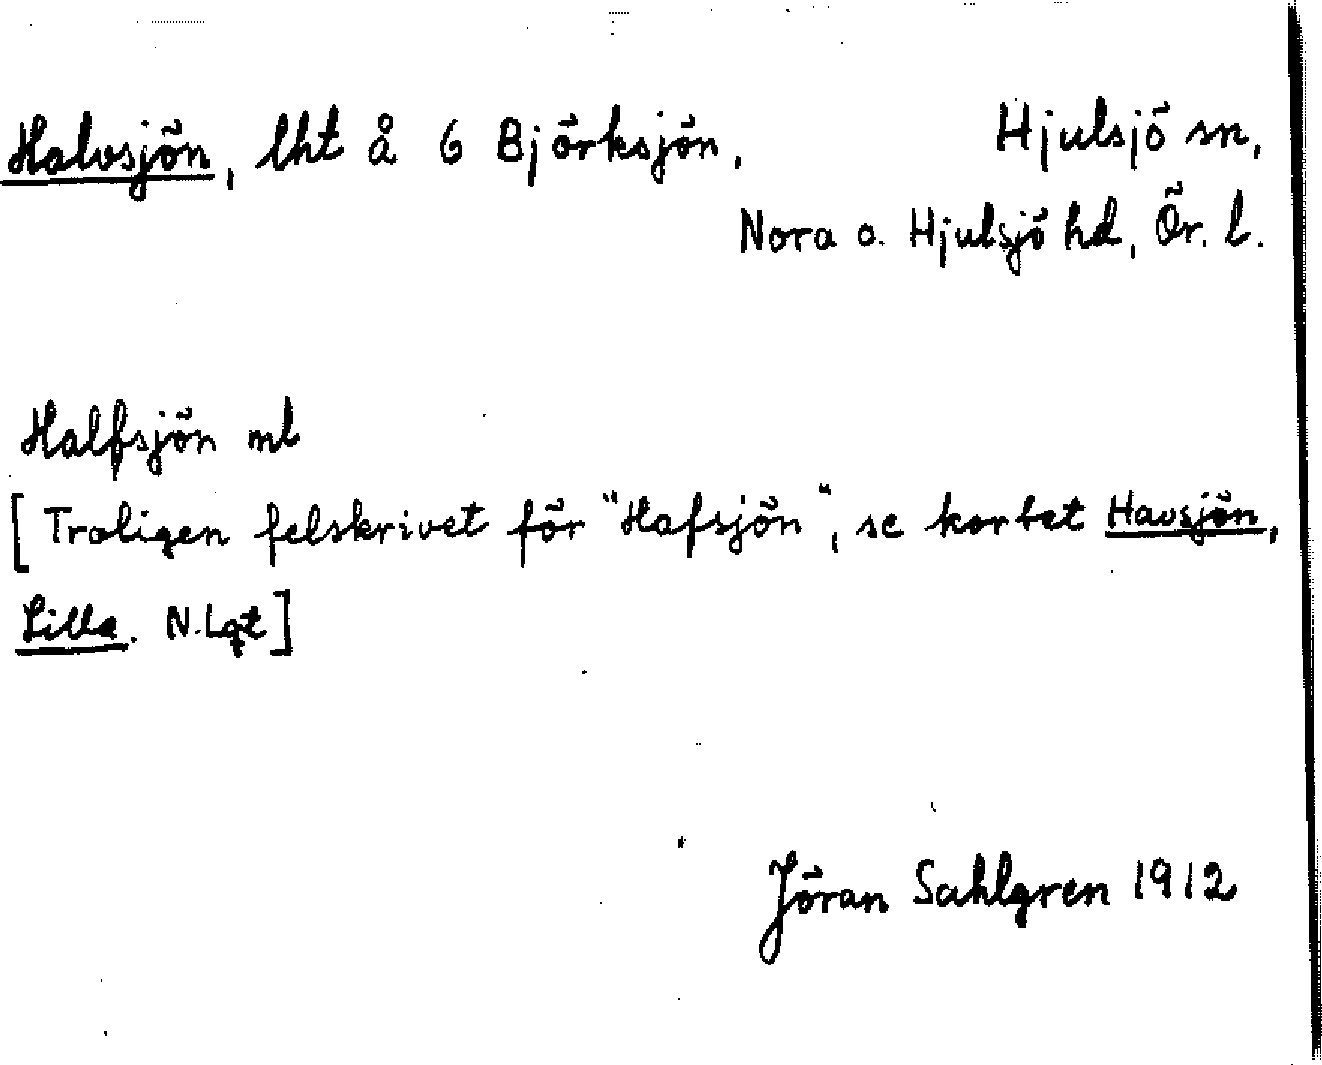 Halvsjön, lht å 6 Björksjön. Hjulsjö sn,
Nora o. Hjulsjö hd, Ör. l.
Halfsjön ml
[Troligen felskrivet för "Hafsjön", se kortet Havsjön,
Lilla. N. Lqt]
Jöran Sahlgren 1912